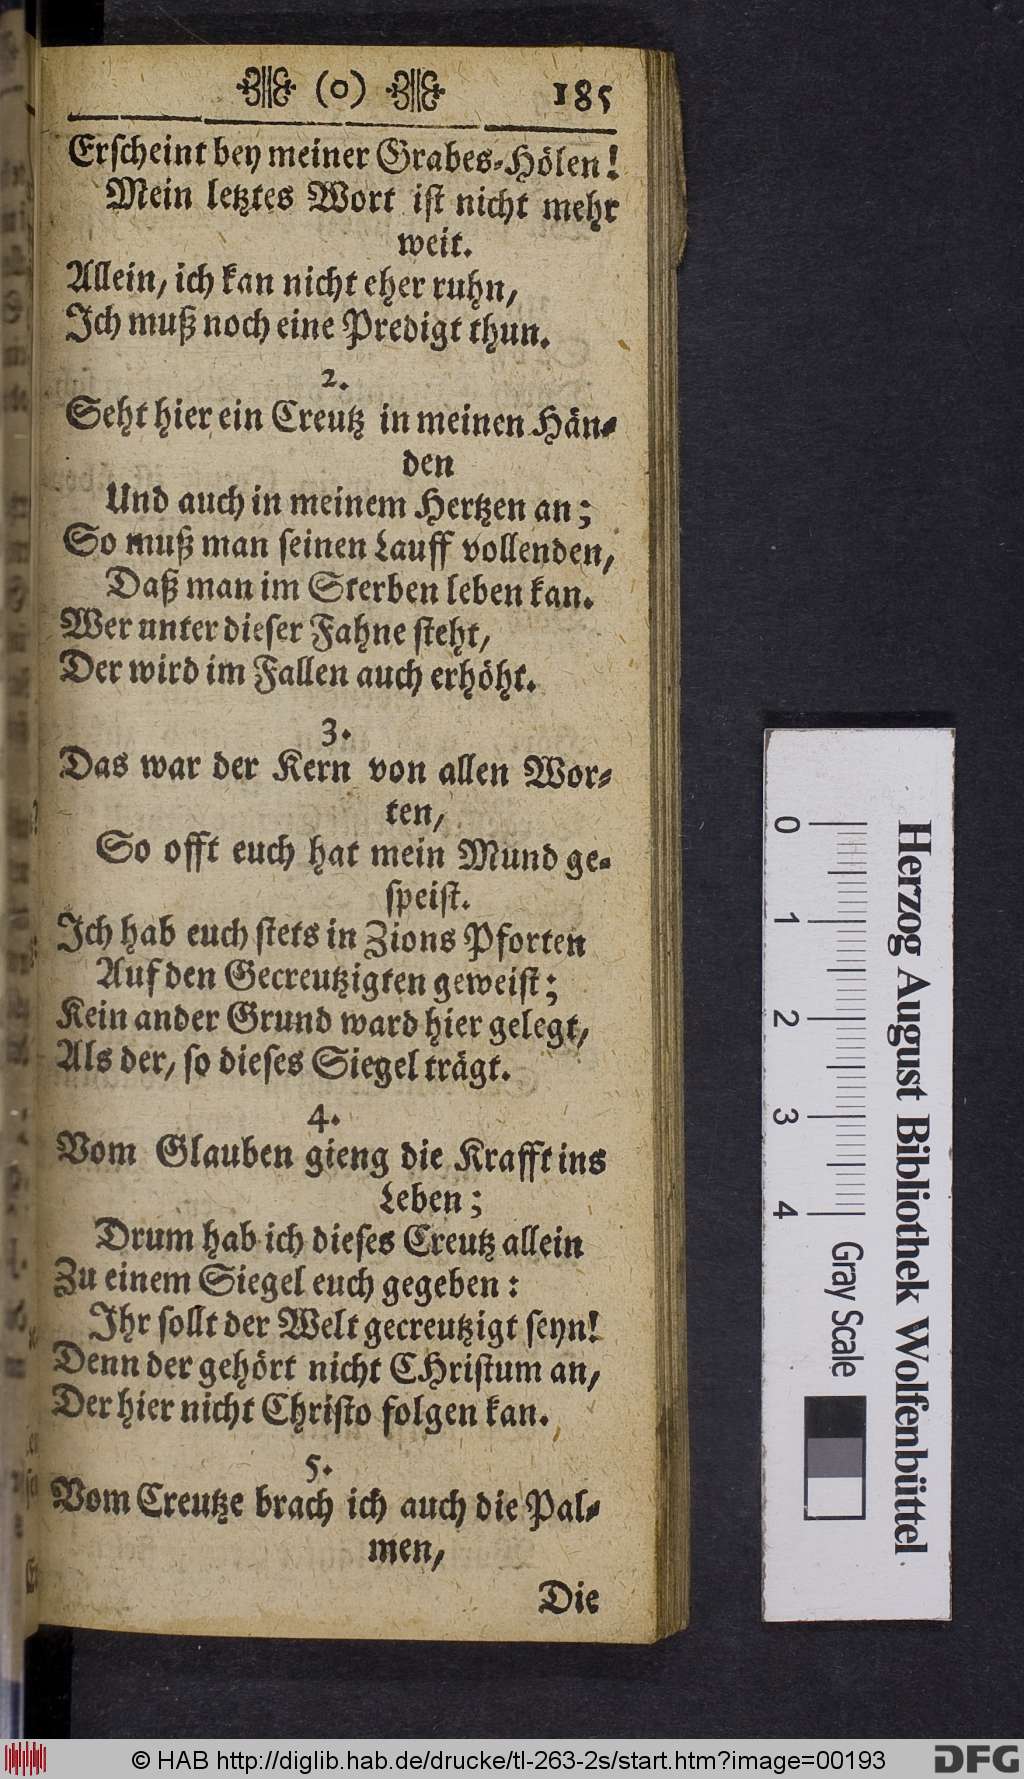 (o) 185
Erſcheint bey meiner Grabes-Hölen!
Mein letztes Wort iſt nicht mehr
weit.
Allein, ich kan nicht eher ruhn,
Ich muß noch eine Predigt thun.
2.
Seht hier ein Creutz in meinen Hän-
den
Und auch in meinem Hertzen an;
So muß man ſeinen Lauff vollenden,
Daß man im Sterben leben kan.
Wer unter dieſer Fahne ſteht,
Der wird im Fallen auch erhöht.
3.
Das war der Kern von allen Wor-
ten,
So offt euch hat mein Mund ge-
ſpeiſt.
Ich hab euch ſtets in Zions Pforten
Auf den Gecreutzigten geweiſt;
Kein ander Grund ward hier gelegt,
Als der, ſo dieſes Siegel trägt.
4.
Vom Glauben gieng die Krafft ins
Leben;
Drum hab ich dieſes Creutz allein
Zu einem Siegel euch gegeben:
Ihr ſollt der Welt gecreutzigt ſeyn!
Denn der gehört nicht CHriſtum an,
Der hier nicht Chriſto folgen kan.
5.
Vom Creutze brach ich auch die Pal-
men,
Die
0 1 2 3 4 Gray Scale
Herzog August Bibliothek Wolfenbüttel
© HAB http://diglib.hab.de/drucke/tl-263-2s/start.htm?image=00193
DFG